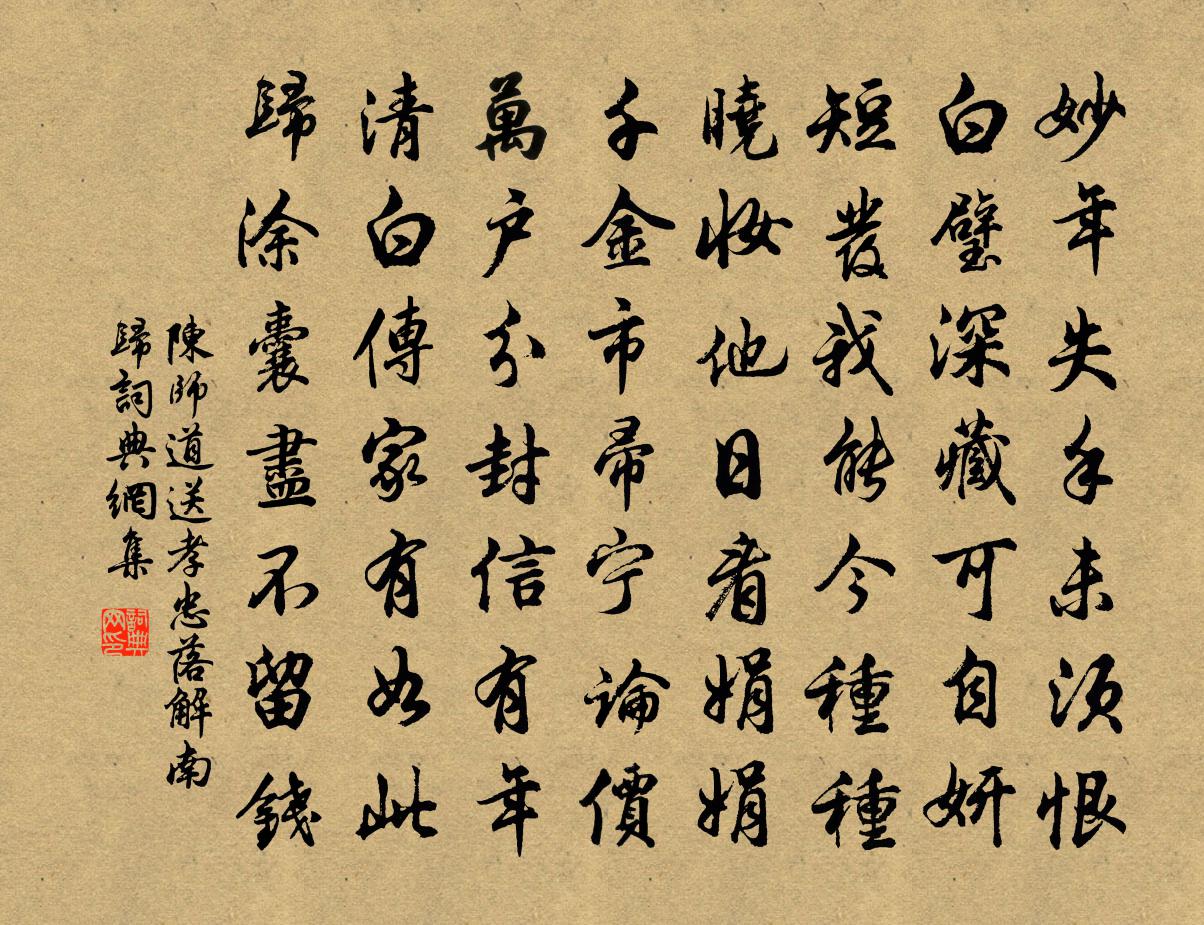 妙年失手未須恨
白璧深藏可自妍
短發我能今種種
曉妝他日看娟娟
千金市帚宁論價
萬户分封信有年
清白傳家有如此
歸涂囊盡不留錢
陳師道送孝忠落解南
歸詞典網集
詞典网印